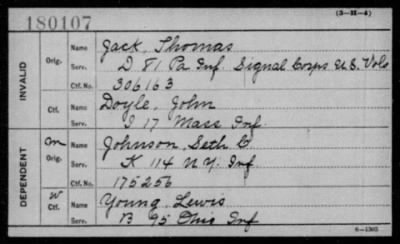 180107
(3-H-4)
INVALID
Orig. Name Jack, Thomas
Serv. D 81 Pa Inf. Signal Corps U.S. Vols
Ctf. No. 306163
Ctf. Name Doyle, John
Serv. I 17 Mass Inf.
DEPENDENT
m Orig. Name Johnson, Seth C
Serv. K 114 N.Y. Inf.
Ctf. No. 175256
W Ctf. Name Young, Lewis
Serv. B 95 Ohio Inf
6-1305